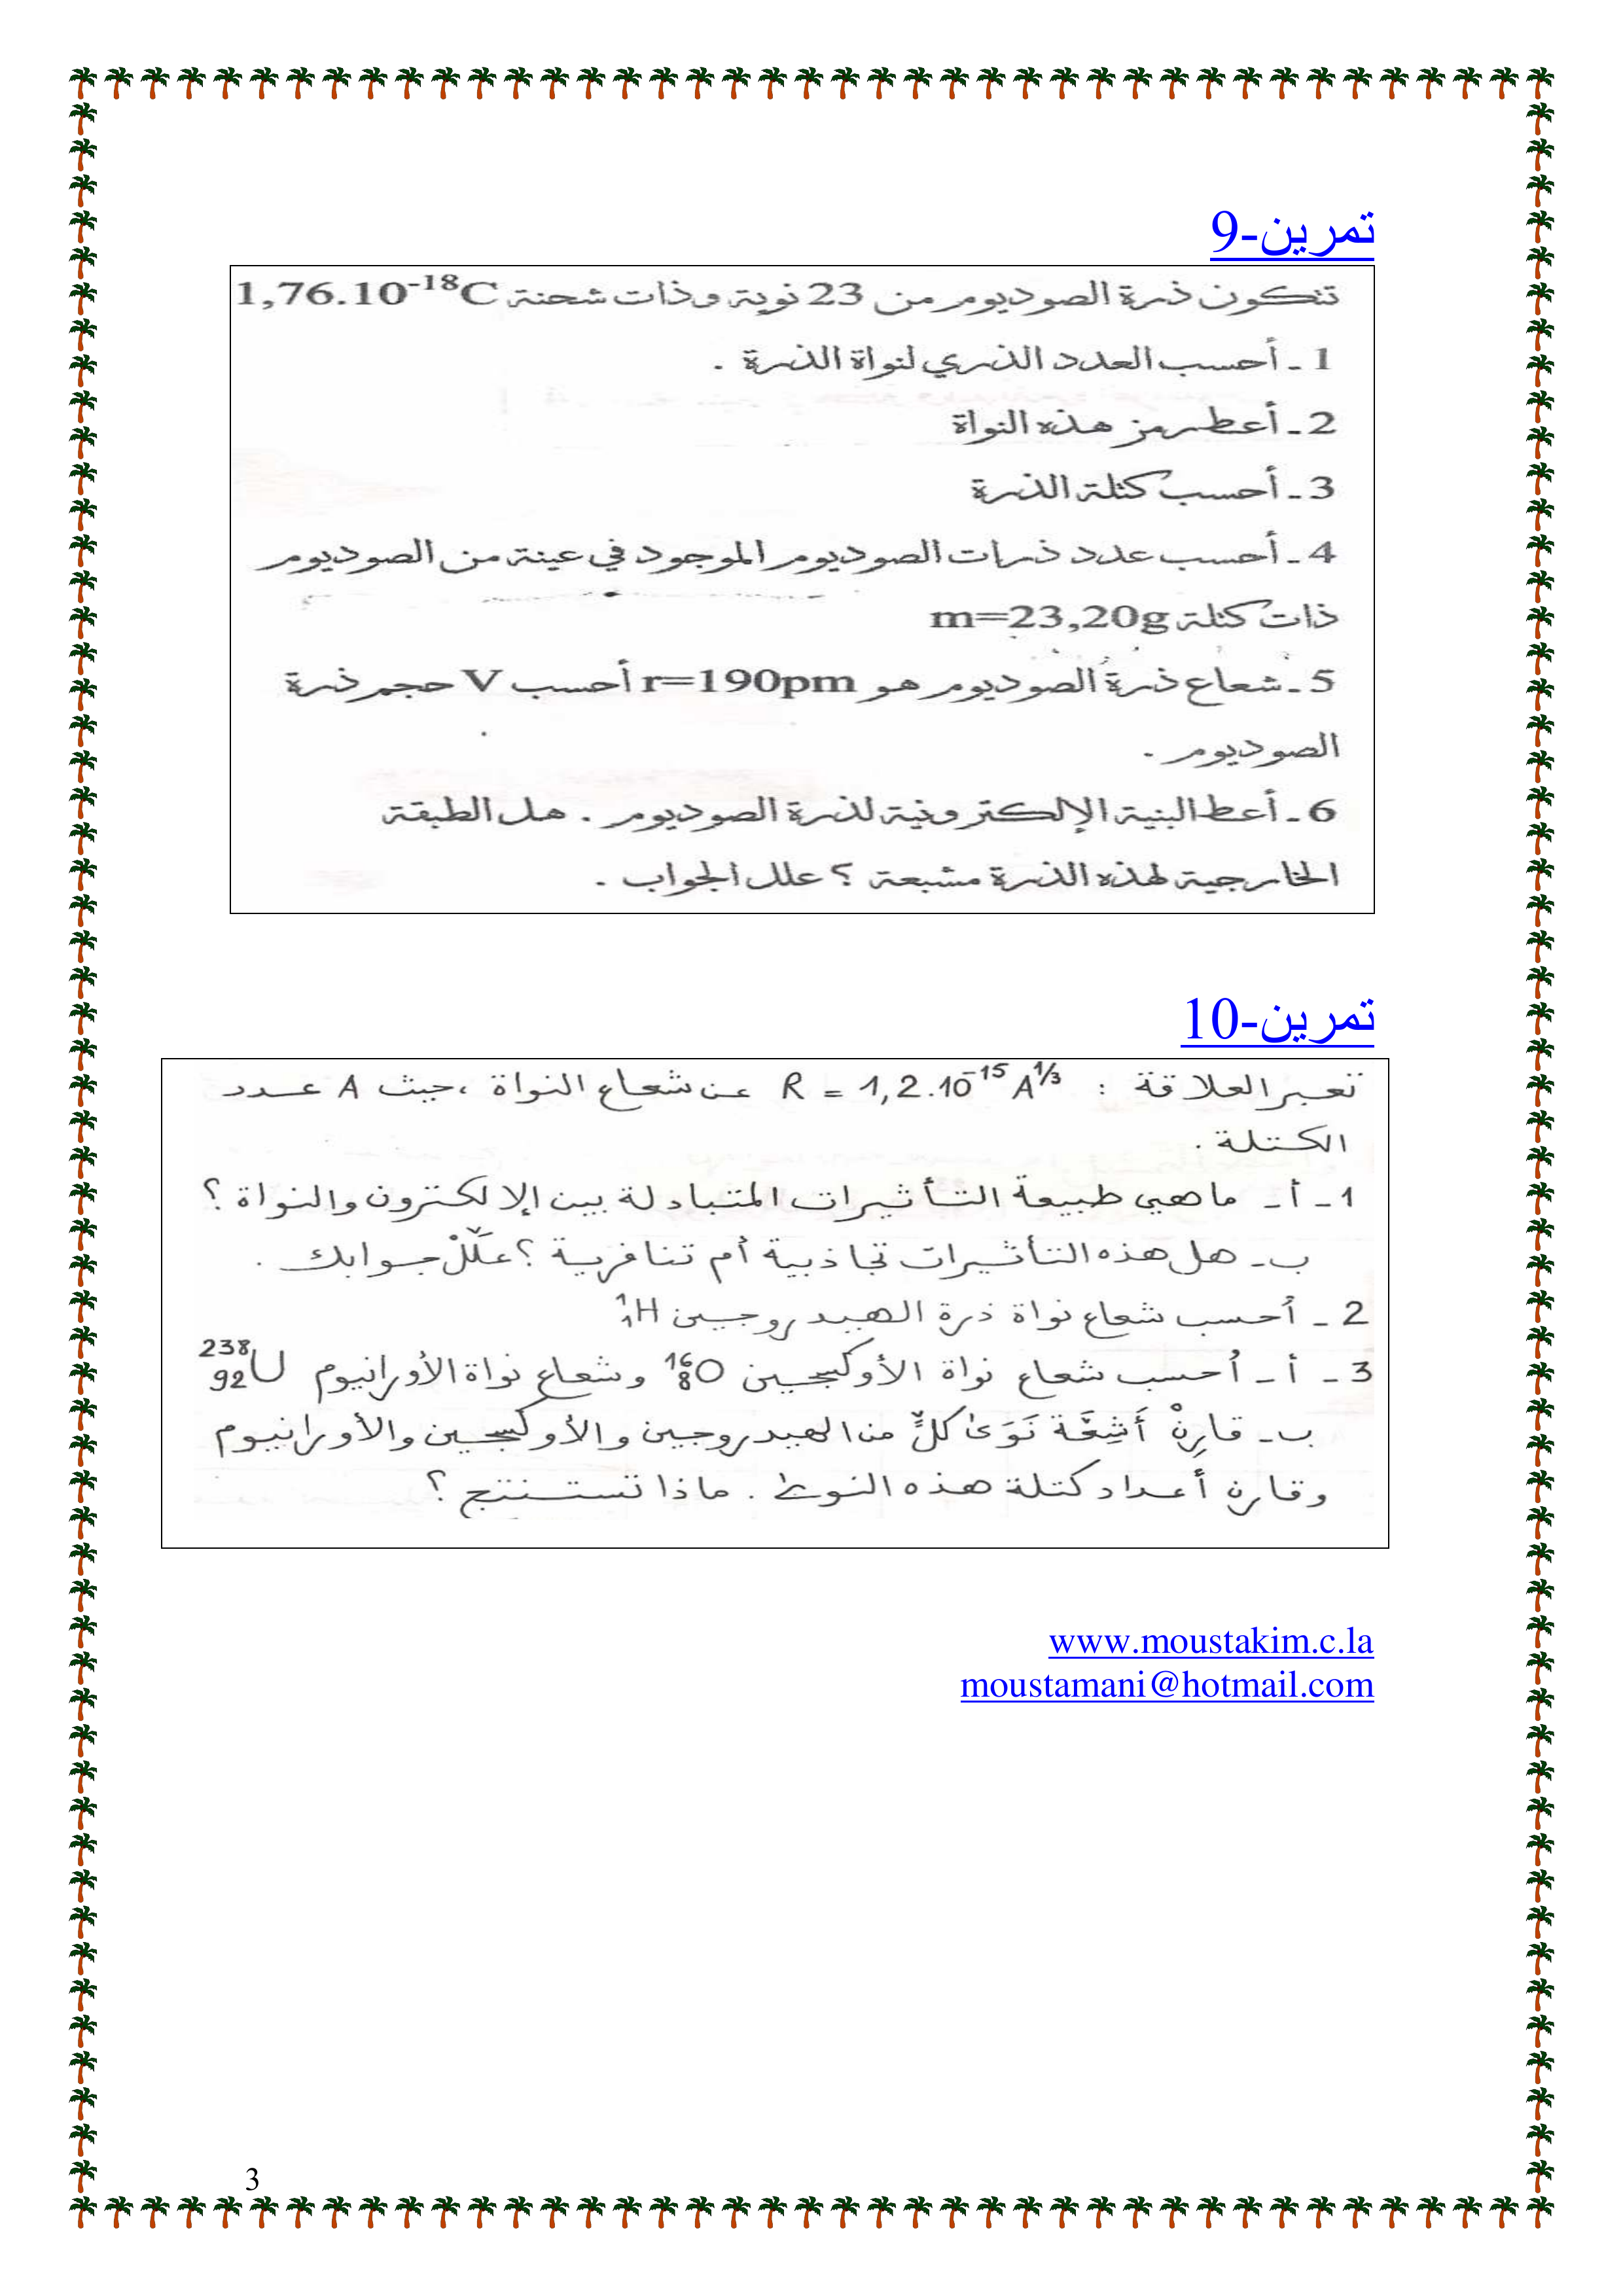 تمرين-9
تتكون ذرة الصوديوم من 23 نوية وذات شحنة 1,76.10⁻¹⁸C
1 ـ أحسب العدد الذري لنواة الذرة .
2 ـ أعط رمز هذه النواة
3 ـ أحسب كتلة الذرة
4 ـ أحسب عدد ذرات الصوديوم الموجود في عينة من الصوديوم
ذات كتلة m=23,20g
5 ـ شعاع ذرة الصوديوم هو r=190pm أحسب V حجم ذرة
الصوديوم .
6 ـ أعط البنية الإلكترونية لذرة الصوديوم . هل الطبقة
الخارجية لهذه الذرة مشبعة ؟ علل الجواب .
تمرين-10
تعبر العلاقة : R = 1,2.10⁻¹⁵ A^1/3 عن شعاع النواة ، حيث A عدد
الكتلة .
1 ـ أ ـ ما هي طبيعة التأثيرات المتبادلة بين الإلكترون والنواة ؟
ب ـ هل هذه التأثيرات تجاذبية أم تنافرية ؟ علّلْ جوابك .
2 ـ أحسب شعاع نواة ذرة الهيدروجين ¹₁H
3 ـ أ ـ أحسب شعاع نواة الأوكسجين ¹⁶₈O وشعاع نواة الأورانيوم ²³⁸₉₂U
ب ـ قارِنْ أَشِعَّة نَوَى كلٍّ من الهيدروجين والأوكسجين والأورانيوم
وقارن أعداد كتلة هذه النوى . ماذا تستنتج ؟
www.moustakim.c.la
moustamani@hotmail.com
3